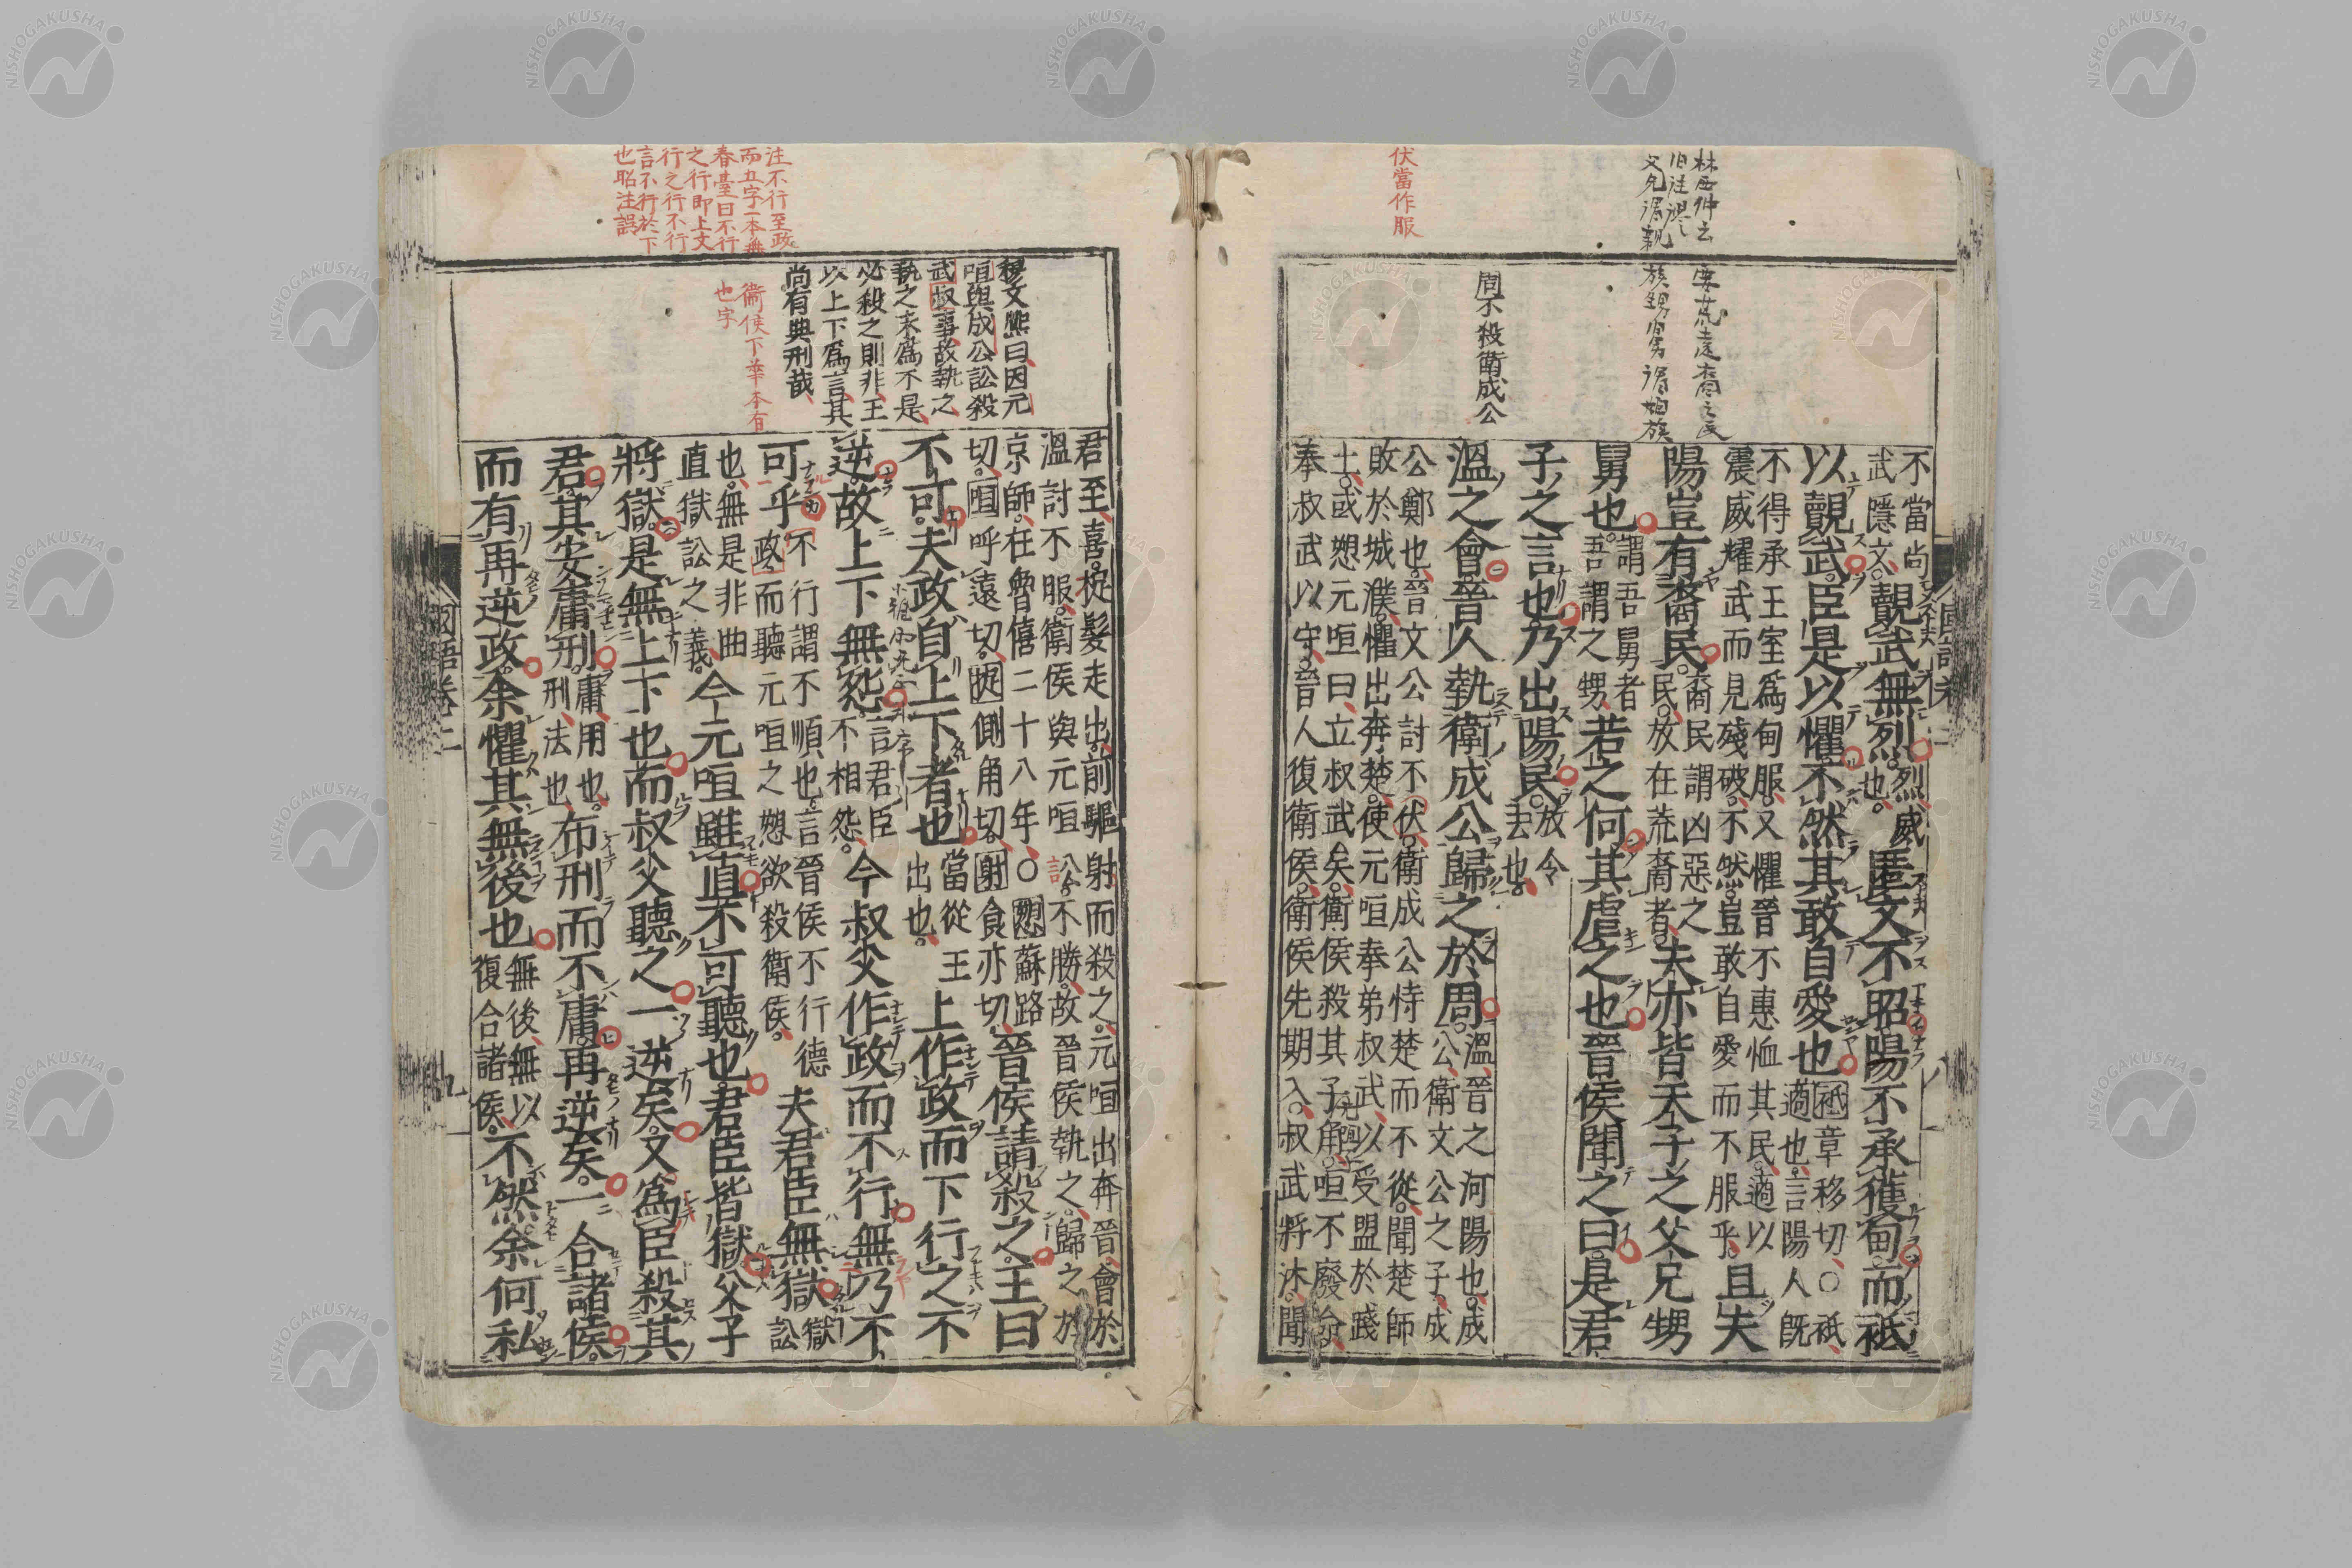 林西仲云
旧注混
父兄謂親
族甥舅謂姻族
伏當作服
周不殺衛成公
不當尚
武隱文。覿武無烈。烈威也。匿文不昭。陽不承獲甸。而祗
以覿武。臣是以懼。不然其敢自愛也。祗章移切。〇祗、適也。言陽人既
不得承王室爲甸服。又懼晉不惠恤其民。適以
震威耀武而見殘破。不然。豈敢自愛而不服乎。且夫
陽豈有裔民。裔民謂凶惡之民。放在荒裔者。夫亦皆天子之父兄甥
舅也。謂吾舅者吾謂之甥。若之何其虐之也。晉侯聞之曰。是君
子之言也。乃出陽民。放令去也。
溫之會。晉人執衛成公歸之於周。溫、晉之河陽也。成公、衛文公之子、成
公鄭也。晉文公討不伏。衛成公恃楚而不從。聞楚師
敗於城濮。懼出奔楚。使元咺奉弟叔武、以受盟於踐
土。或愬元咺曰、立叔武矣。衛侯殺其子角。咺不廢命。
奉叔武以守。晉人復衛侯。衛侯先期入。叔武將沐。聞
君至、喜。捉髮走出。前驅射而殺之。元咺出奔晉。會於
溫討不服。衛侯與元咺訟。不勝。故晉侯執之。歸之於
京師。在魯僖二十八年。〇愬蘇路
切。咺呼遠切。捉側角切。射食亦切。晉侯請殺之。王曰
不可。夫政自上下者也。當從王出也。上作政而下行之不
逆。故上下無怨。言君臣不相怨。今叔父作政而不行。無乃不
可乎。不行謂不順也。言晉侯不行德政而聽元咺之愬欲殺衛侯。夫君臣無獄。獄訟
也。無是非曲直獄訟之義。今元咺雖直。不可聽也。君臣皆獄。父子
將獄。是無上下也。而叔父聽之。一逆矣。又爲臣殺其
君。其安庸刑。庸、用也。刑、法也。布刑而不庸。再逆矣。一合諸侯。
而有再逆政。余懼其無後也。無後、無以復合諸侯。不然。余何私
穆文熙曰、因元
咺與成公訟殺
武叔事、故執之、
執之未爲不是、
必殺之則非、王
以上下爲言、其
尚有典刑哉、
注不行至政
而五字一本無
春臺曰不行
之行即上文
行之行不行
言不行於下
也昭注誤
衞侯下華本有
也字
國語卷二
九
NISHOGAKUSHA